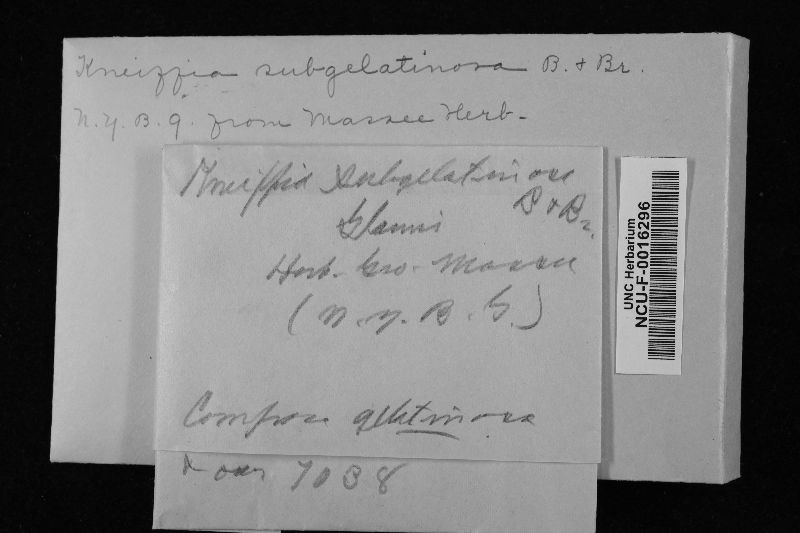 Kneiffia subgelatinosa B. & Br.
N.Y.B.G. from Massee Herb.
Kneiffia subgelatinosa
B & Br.
Glamis
Herb. Geo. Massee
(N.Y.B.G.)
Compare gelatinosa
& our 7038
UNC Herbarium
NCU-F-0016296